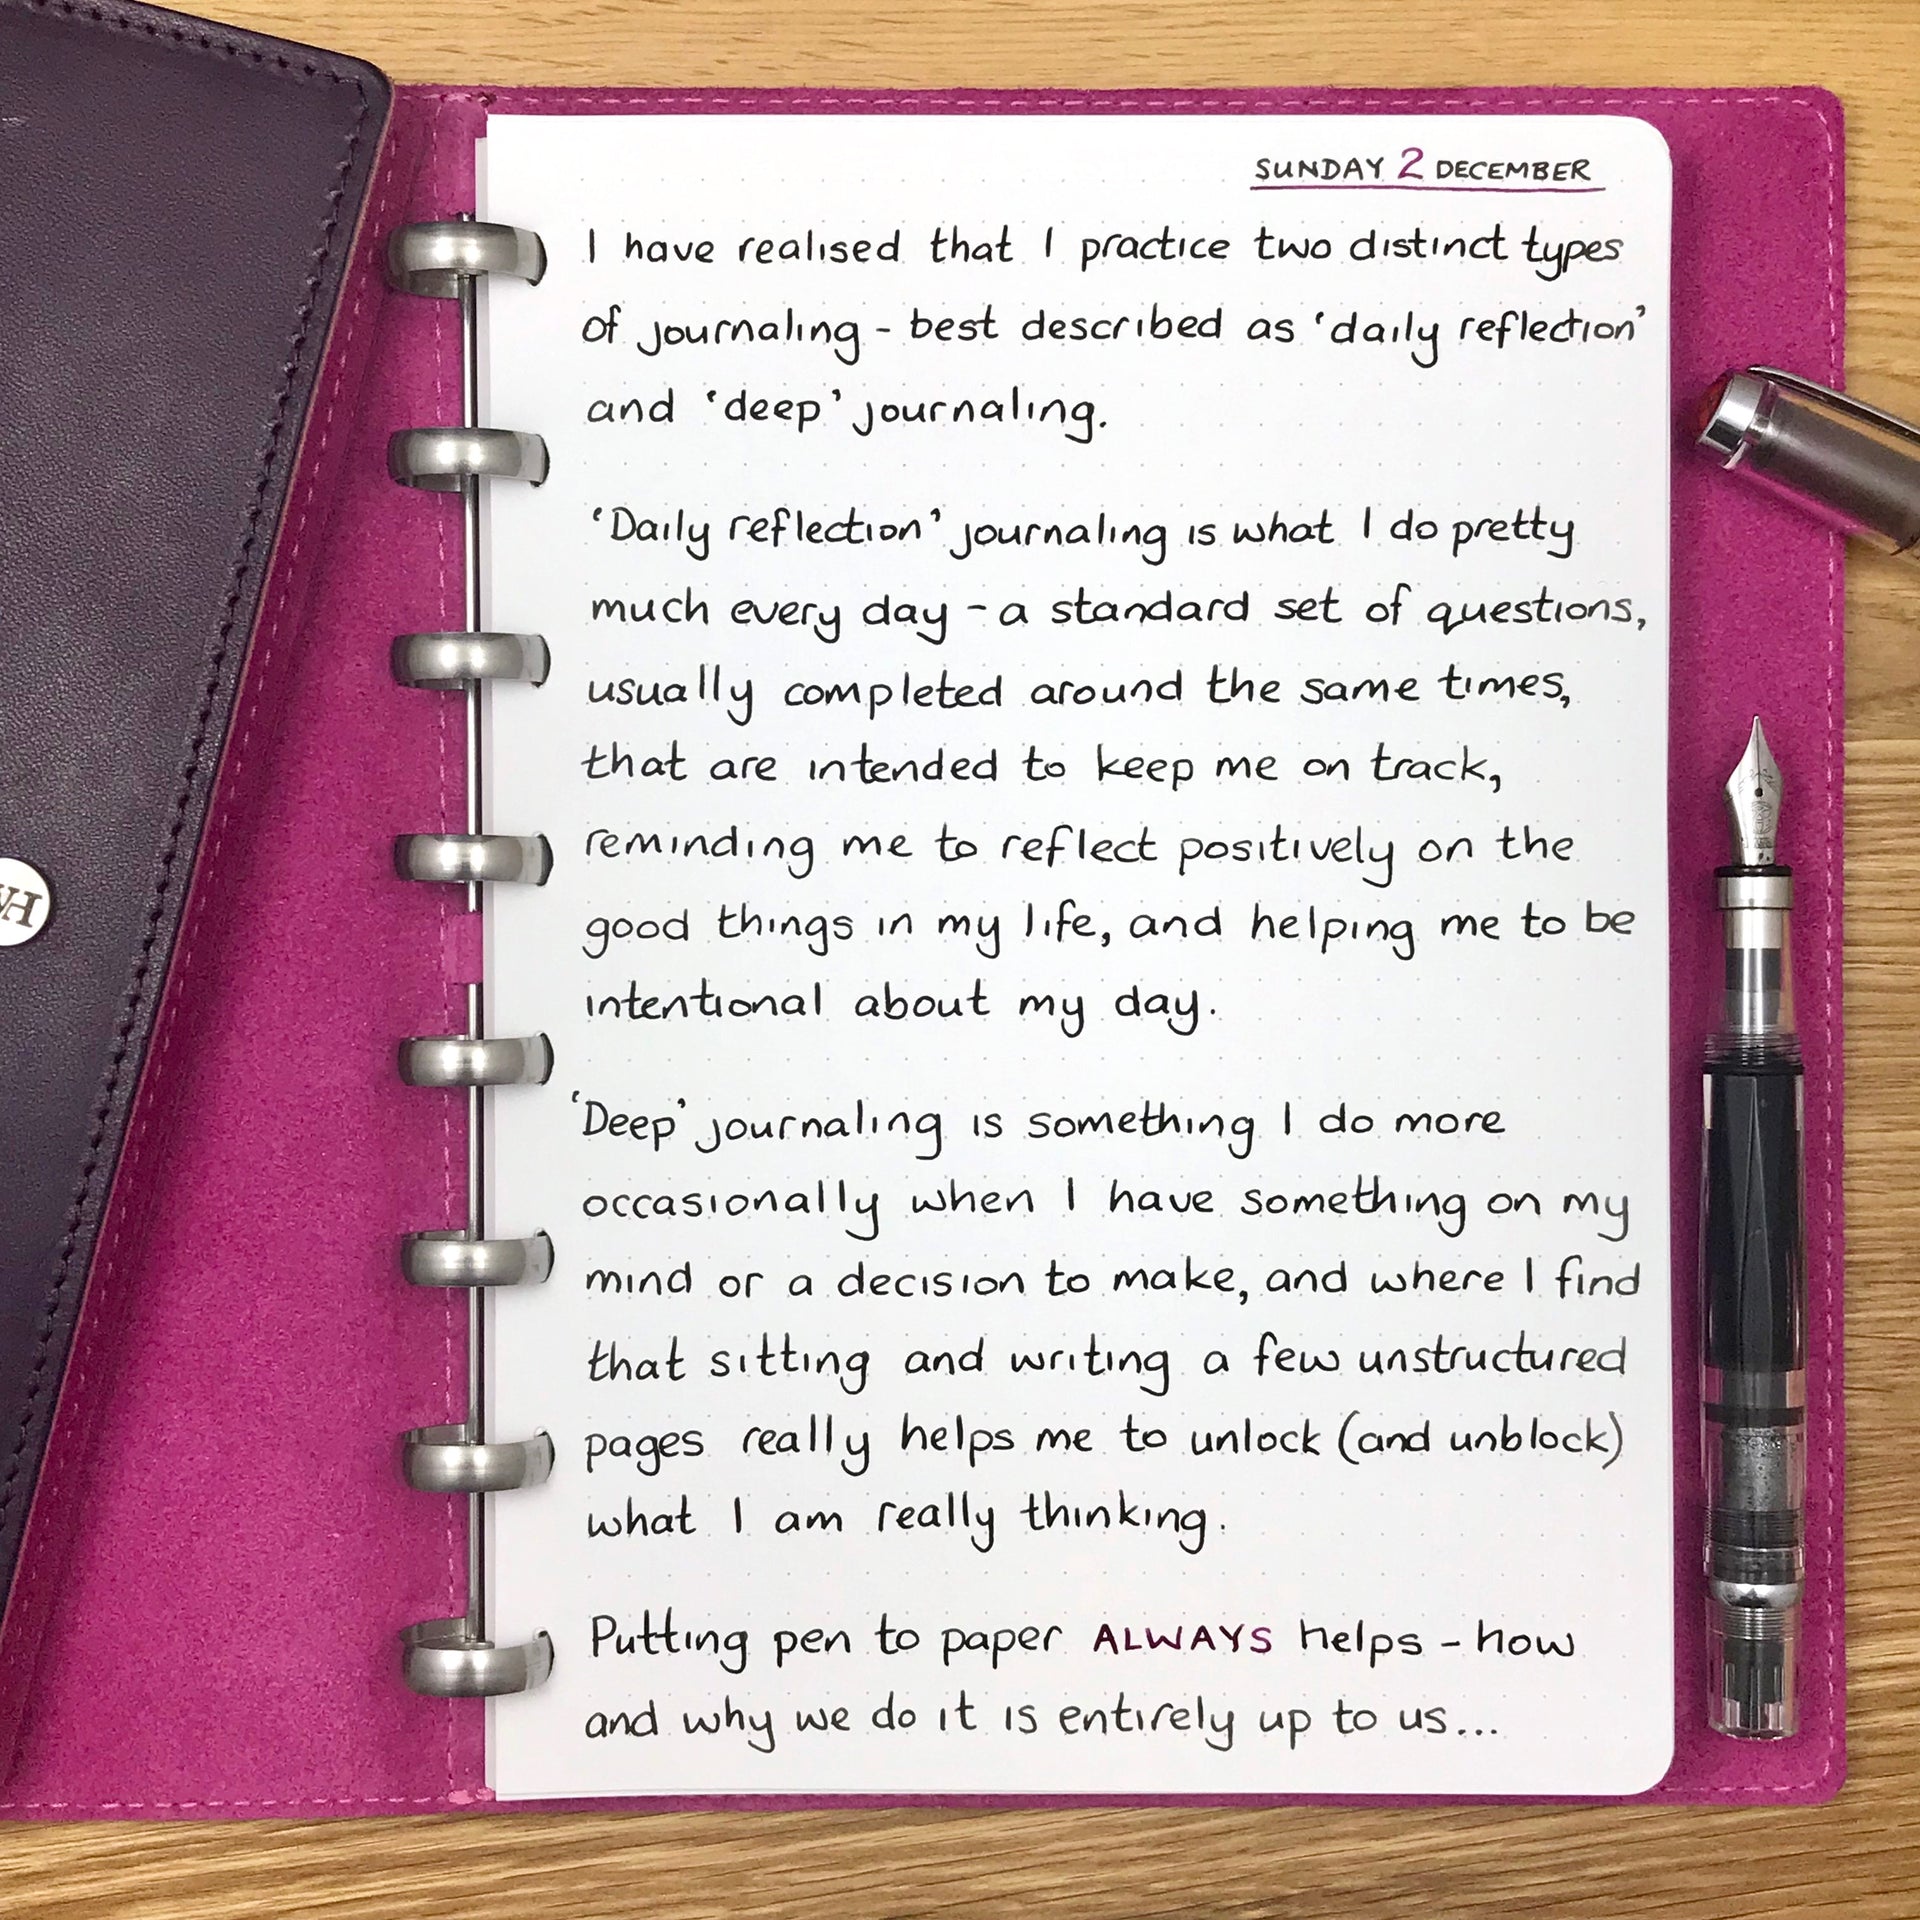 SUNDAY 2 DECEMBER
I have realised that I practice two distinct types
of journaling - best described as 'daily reflection'
and 'deep' journaling.
'Daily reflection' journaling is what I do pretty
much every day - a standard set of questions,
usually completed around the same times,
that are intended to keep me on track,
reminding me to reflect positively on the
good things in my life, and helping me to be
intentional about my day.
'Deep' journaling is something I do more
occasionally when I have something on my
mind or a decision to make, and where I find
that sitting and writing a few unstructured
pages really helps me to unlock (and unblock)
what I am really thinking.
Putting pen to paper ALWAYS helps - how
and why we do it is entirely up to us...